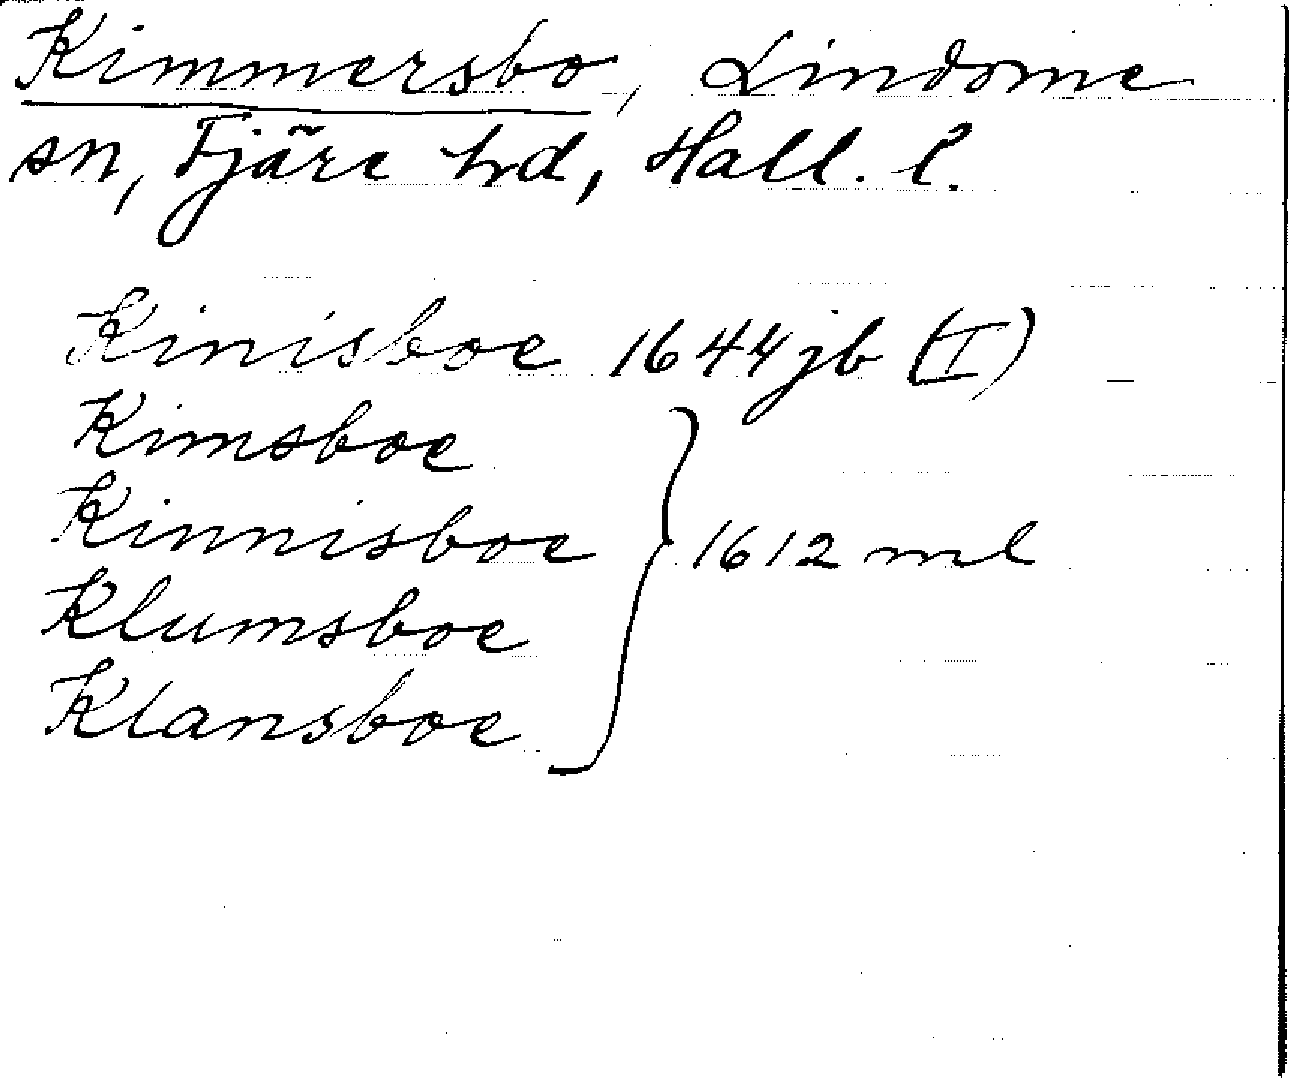 Kimmersbo, Lindome
sn, Fjäre hd, Hall. l.
Kinisboe 1644 jb (I)
Kimsboe
Kinnisboe } 1612 ml
Klumsboe
Klansboe